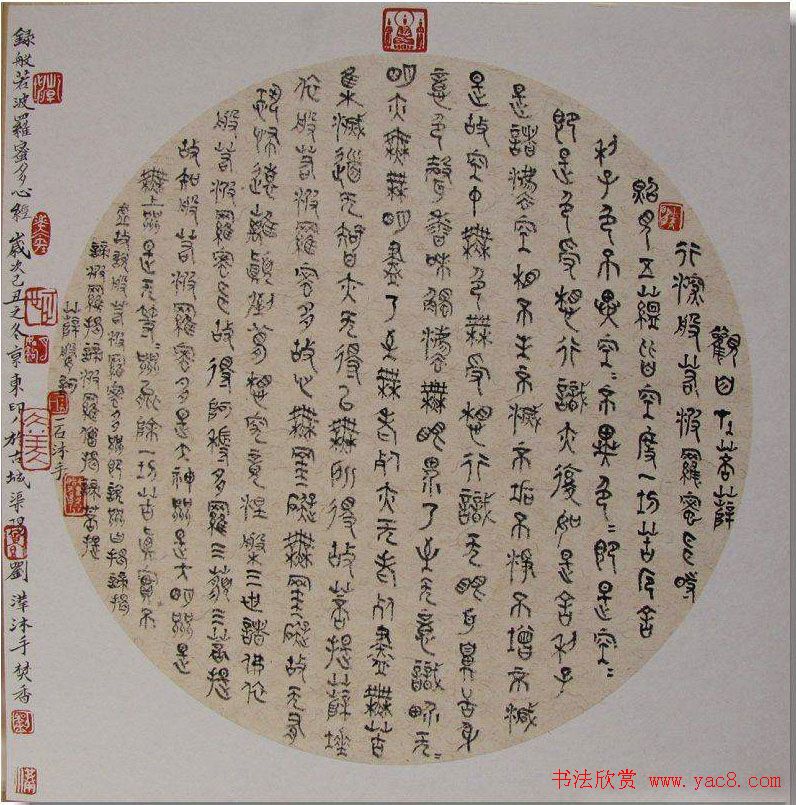 觀自在菩薩
行深般若波羅蜜多時
照見五蘊皆空度一切苦厄舍
利子色不異空〻不異色〻即是空〻
即是色受想行識亦復如是舍利子
是諸法空相不生不滅不垢不淨不增不減
是故空中無色無受想行識无眼耳鼻舌身
意色聲香味觸法無眼界乃至无意識界无〻
明亦無無明盡乃至無老死亦无老死盡無苦
集滅道无智亦无得以無所得故菩提薩埵
依般若波羅蜜多故心無罣礙無罣礙故无有
恐怖遠離顛倒夢想究竟涅槃三世諸佛依
般若波羅蜜多故得阿耨多羅三藐三菩提
故知般若波羅蜜多是大神咒是大明咒是
無上咒是无等〻咒能除一切苦真實不
虛故說般若波羅蜜多咒即說咒曰揭諦揭
諦波羅揭諦波羅僧揭諦菩提
薩婆訶
一石沐手
錄般若波羅蜜多心經 歲次己丑之冬京東印人於古城渠 劉 沐手焚香
书法欣赏 www.yac8.com